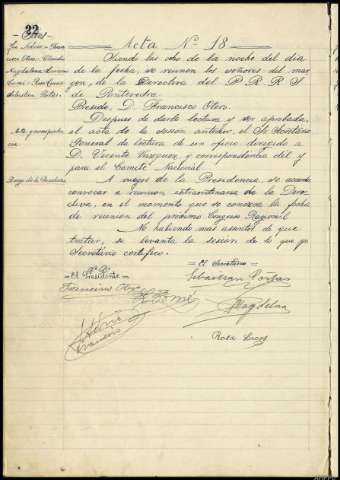 32
Acta Nº 18
Siendo las ocho de la noche del día
de la fecha, se reunen los señores del mar
gen, de la Directiva del P.R.R.S
de Pontevedra.
Preside D. Francisco
Despues de darle lectura y ser aprobada,
el acta de la sesion anterior, el Sr Secretario
General da lectura de un oficio dirigido a
D. Vicente Vazquez, y correspondencia del y
para el Comité Nacional.
A ruegos de la Presidencia, se acuerda
convocar a reunion extraordinaria de la Direc
tiva, en el momento que se conozca la fecha
de reunion del próximo Congreso Regional.
No habiendo mas asuntos de que
tratar, se levanta la sesion de lo que yo
Secretario certifico.
Vº Bº
El Presidente
El Secretario
Francisco
Sebastian
Magdalena
Rosa